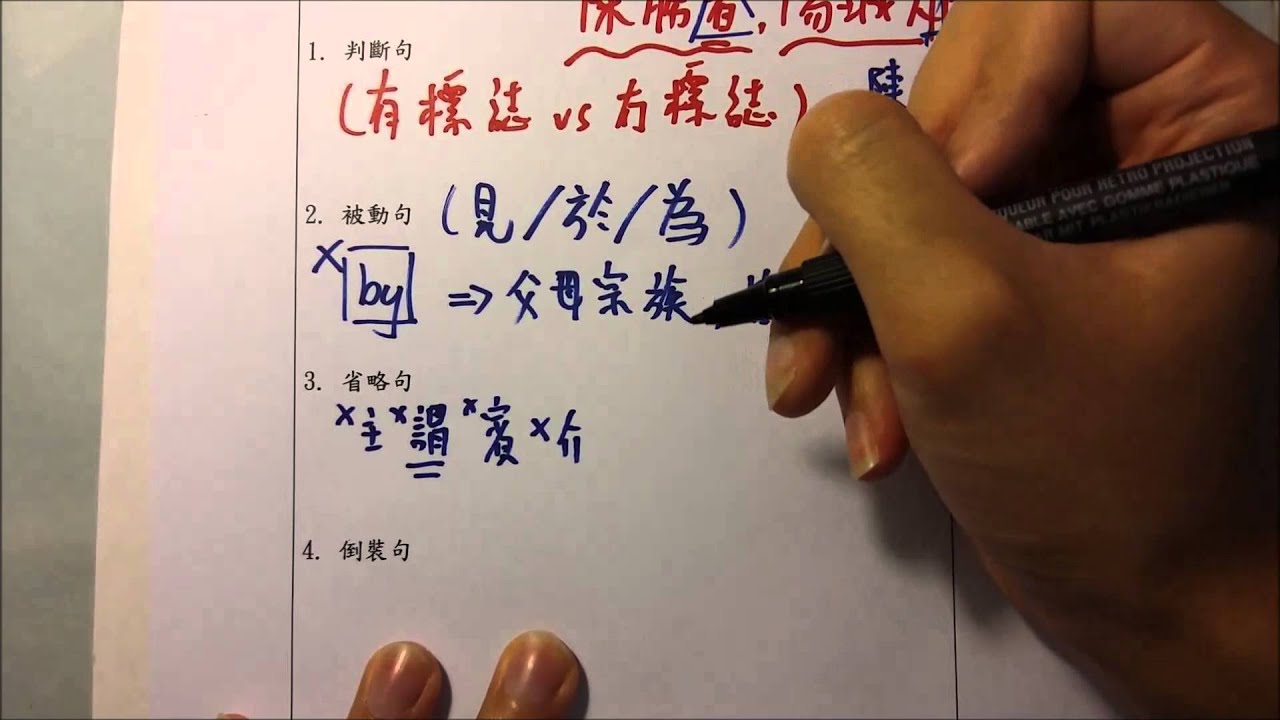 陳勝者,陽城
1. 判斷句
(有標誌 vs 冇標誌)
2. 被動句 (見/於/為)
x by ⇒ 父母宗族,
3. 省略句
x主x謂x賓x介
4. 倒裝句
MARQUEUR POUR RETRO PROJECTION
AVEC GOMME PLASTIQUE